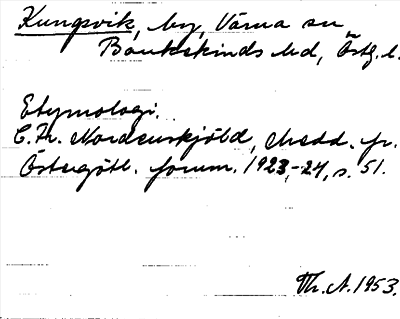 Kungsvik, by, Värna sn
Bankekinds hd, Östg. l.
Etymologi.
C. Fr. Nordenskjöld, Medd. fr.
Östergötl. fornm. 1923,-24, s. 51.
Th. A. 1953.